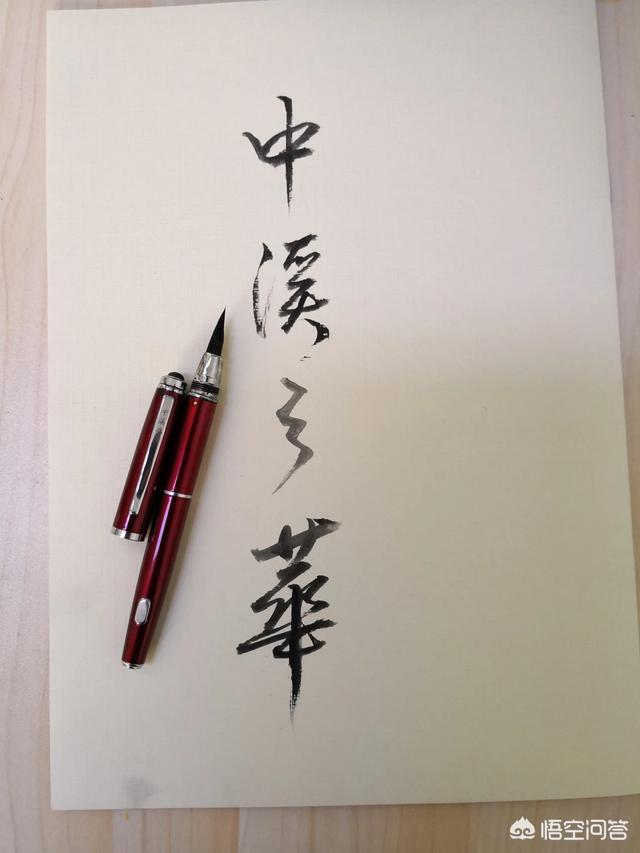 中
之
華
悟空问答